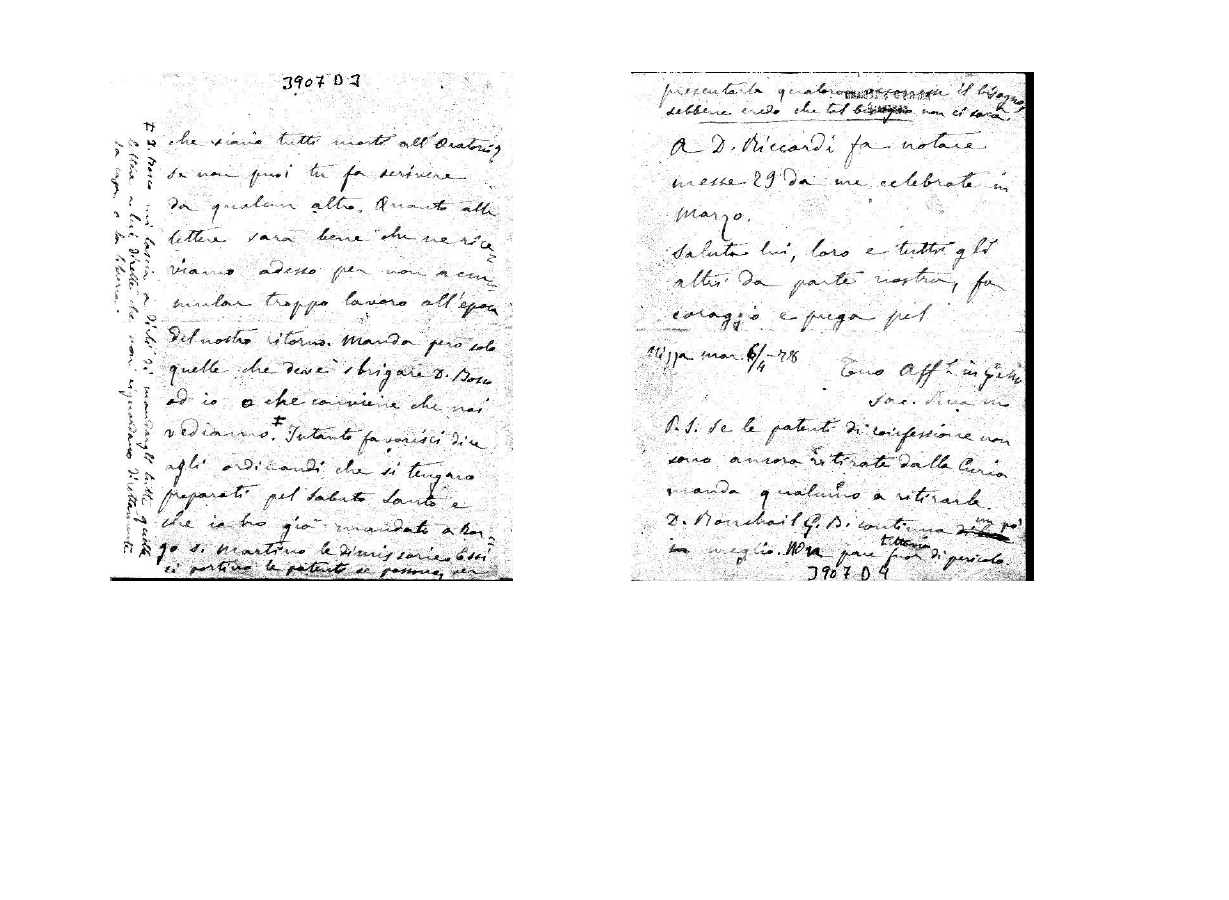 3907 D 3
che siano tutti morti all'Oratorio,
se non puoi tu fa scrivere
da qualcun altro. Quanto alle
lettere sarà bene che ne rice-
viamo adesso per non accu-
mular troppo lavoro all'epoca
del nostro ritorno. Manda però solo
quelle che deve sbrigare D. Bosco
od io o che conviene che noi
vediamo. ‡ Intanto favorisci dire
agli ordinandi che si tengano
preparati pel Sabato Santo e
che io ho già mandato a Bor-
go S. Martino le dimissorie. Essi
si portino le patenti se possono, per
‡ D. Bosco mi lascia a dirti di mandargli tutte quelle
lettere a lui dirette che non riguardano direttamente
la
presentarla qualora il bisogno,
sebbene credo che tal bisogno non ci sarà.
A D. Riccardi fa notare
messe 29 da me celebrate in
Marzo.
Saluta lui, loro e tutti gli
altri da parte nostra, fa
coraggio e prega pel
Nizza mar. 6/4 -78
Tuo Aff. in G.
Sac. Rua
P.S. Se le patenti di confessione non
sono ancora ritirate dalla Curia
manda qualcuno a ritirarle.
D. Ronchail G. B. continua un po'
in meglio. pare fuor di pericolo.
3907 D 4